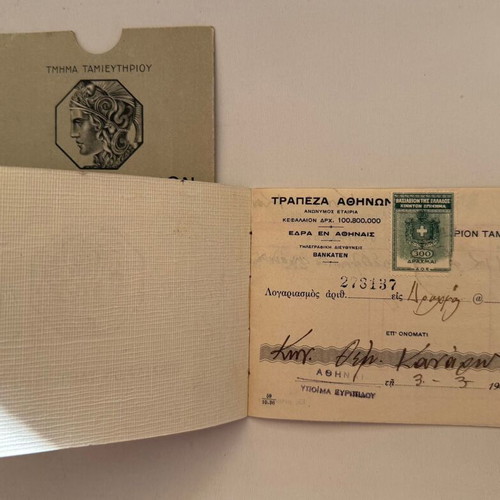 ΤΜΗΜΑ ΤΑΜΙΕΥΤΗΡΙΟΥ
ΤΡΑΠΕΖΑ ΑΘΗΝΩΝ
ΑΝΩΝΥΜΟΣ ΕΤΑΙΡΙΑ
ΚΕΦΑΛΑΙΟΝ ΔΡΧ. 100.800.000
ΕΔΡΑ ΕΝ ΑΘΗΝΑΙΣ
ΤΗΛΕΓΡΑΦΙΚΗ ΔΙΕΥΘΥΝΣΙΣ
BANKATEN
ΒΑΣΙΛΕΙΟΝ ΤΗΣ ΕΛΛΑΔΟΣ
300
ΔΡΑΧΜΑΙ
ΡΙΟΝ ΤΑΜ
Λογαριασμὸς ἀριθ. 273137 εἰς Δραχμάς @
ΕΠ' ΟΝΟΜΑΤΙ
ΑΘΗΝ τῇ 3-3 19
ΥΠΟ)ΜΑ ΕΥΡΙΠΙΔΟΥ